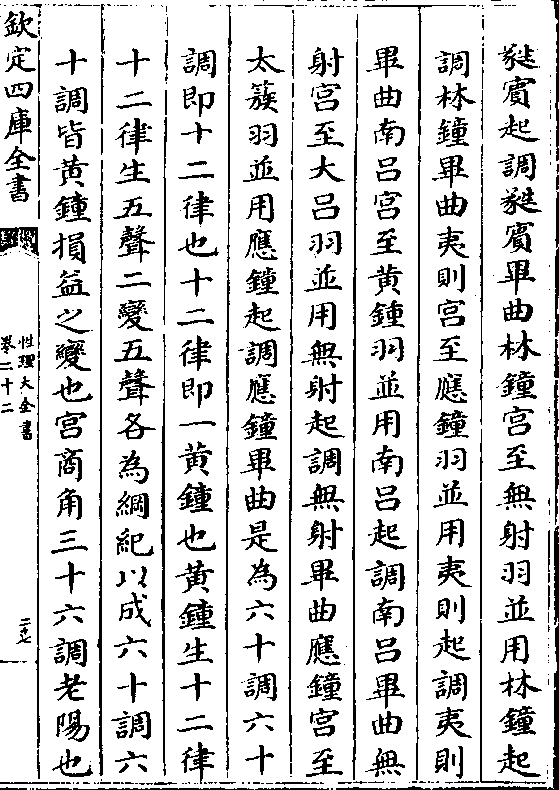 蕤賓起調蕤賓畢曲林鐘宫至無射羽並用林鐘起
調林鐘畢曲夷則宫至應鐘羽並用夷則起調夷則
畢曲南吕宫至黄鍾羽並用南吕起調南吕畢曲無
射宫至大吕羽並用無射起調無射畢曲應鐘宫至
太簇羽並用應鐘起調應鐘畢曲是為六十調六十
調即十二律也十二律即一黄鍾也黄鍾生十二律
十二律生五聲二變五聲各為綱紀以成六十調六
十調皆黄鍾損益之變也宫商角三十六調老陽也
欽定四庫全書
性理大全書
卷二十二